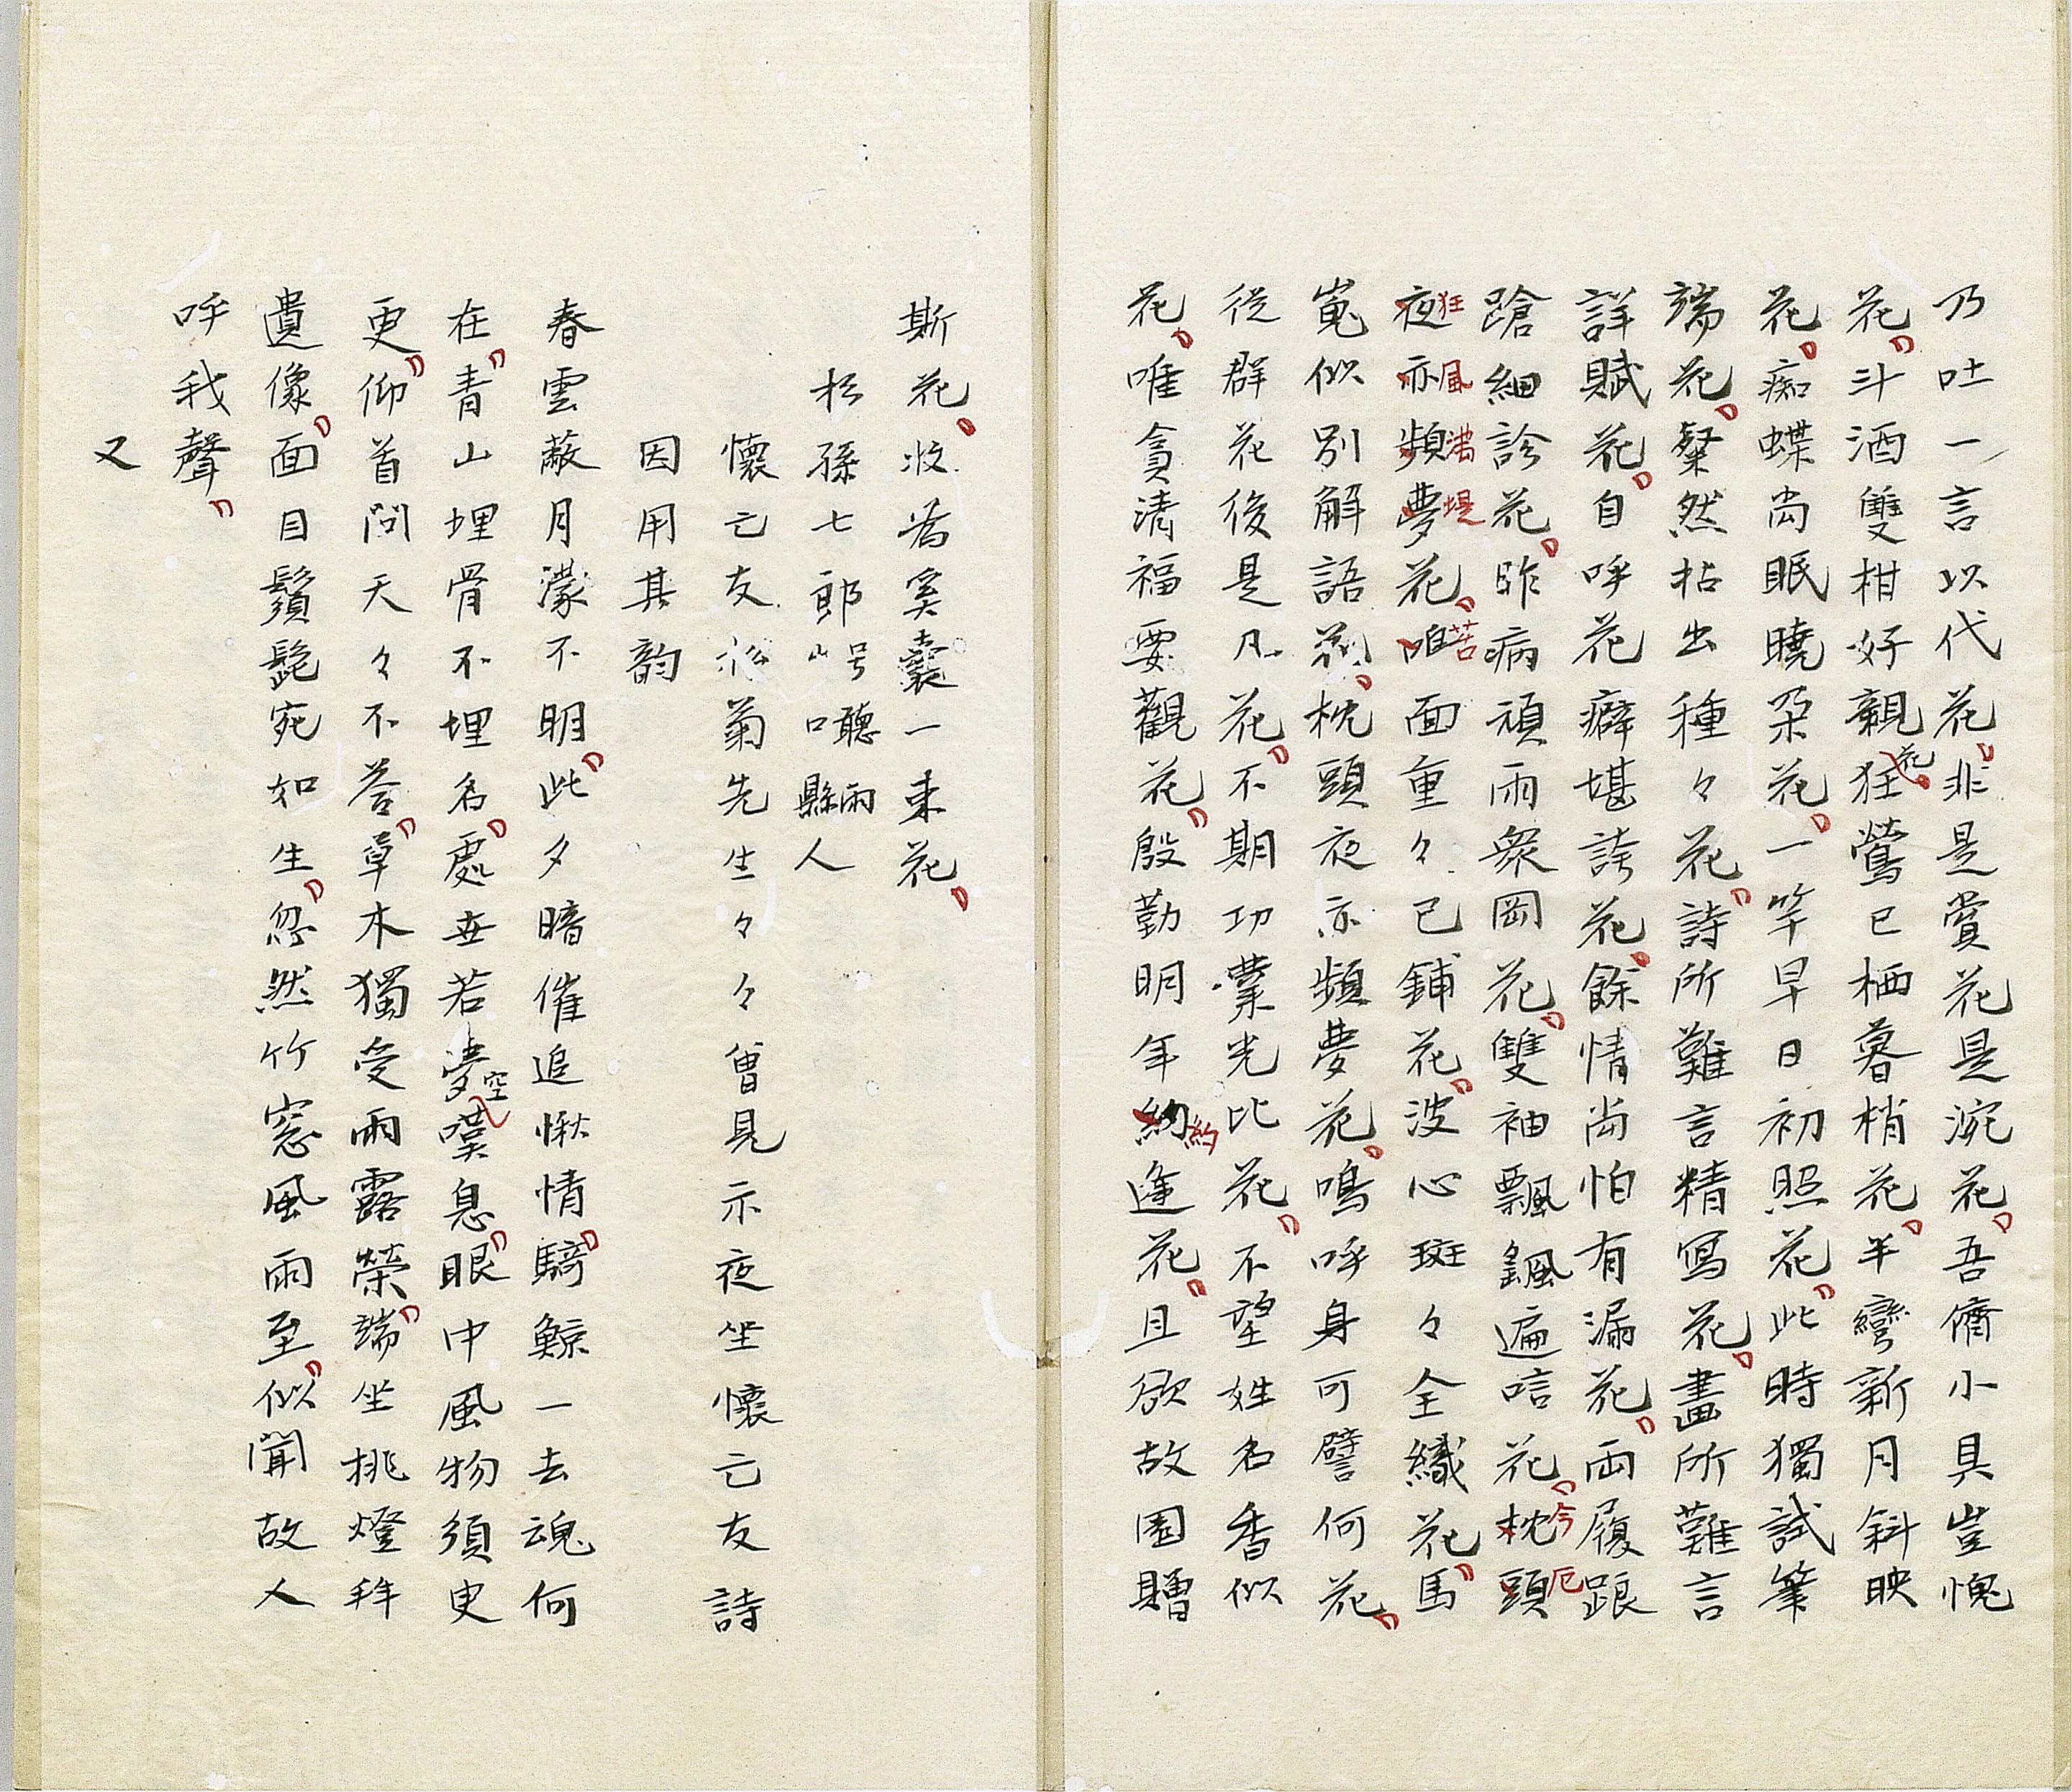 乃吐一言以代花非是賞花是涴花吾儕小具豈愧
花斗酒雙柑好親花狂鶯已栖暮梢花半彎新月斜映
花痴蝶尚眠曉朶花一竿早日初照花此時獨試筆
端花粲然拈出種々花詩所難言精寫花畫所難言
詳賦花自呼花癖堪誇花餘情尚怕有漏花両履踉
蹌細診花昨病頑雨衆岡花雙袖飄颻遍唁花枕頭今厄
夜亦頻夢花狂風満堤咱苦面重々已鋪花波心斑々全織花馬
嵬似別解語花枕頭夜亦頻夢花鳴呼身可譬何花
従群花後是凡花不期功業光比花不望姓名香似
花唯貪清福要觀花殷勤明年約約逢花且欲故園贈
斯花收為奚囊一束花
松孫七郎号聽雨山口縣人
懷亡友松菊先生々々曾見示夜坐懷亡友詩
因用其韵
春雲蔽月濛不明此夕暗催追愀情騎鯨一去魂何
在青山埋骨不埋名處世若夢空嘆息眼中風物須臾
更仰首問天々不答草木獨受雨露榮端坐挑燈拜
遺像面目鬚髭宛如生忽然竹窓風雨至似聞故人
呼我聲
又